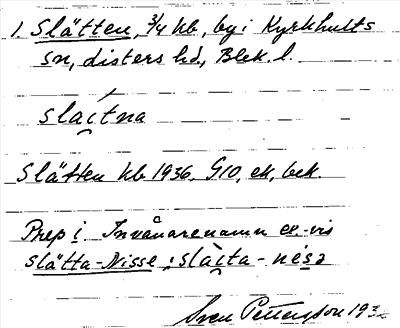 1. Slätten, 3/4 hb, by i Kyrkhults
sn, Listers hd, Blek. l.
slätna
Slätten hb 1936, G10, ek, bek.
Prep i Invånarenamn ex-vis
slätta-Nisse : släta-nesa
Sven Pettersson 193